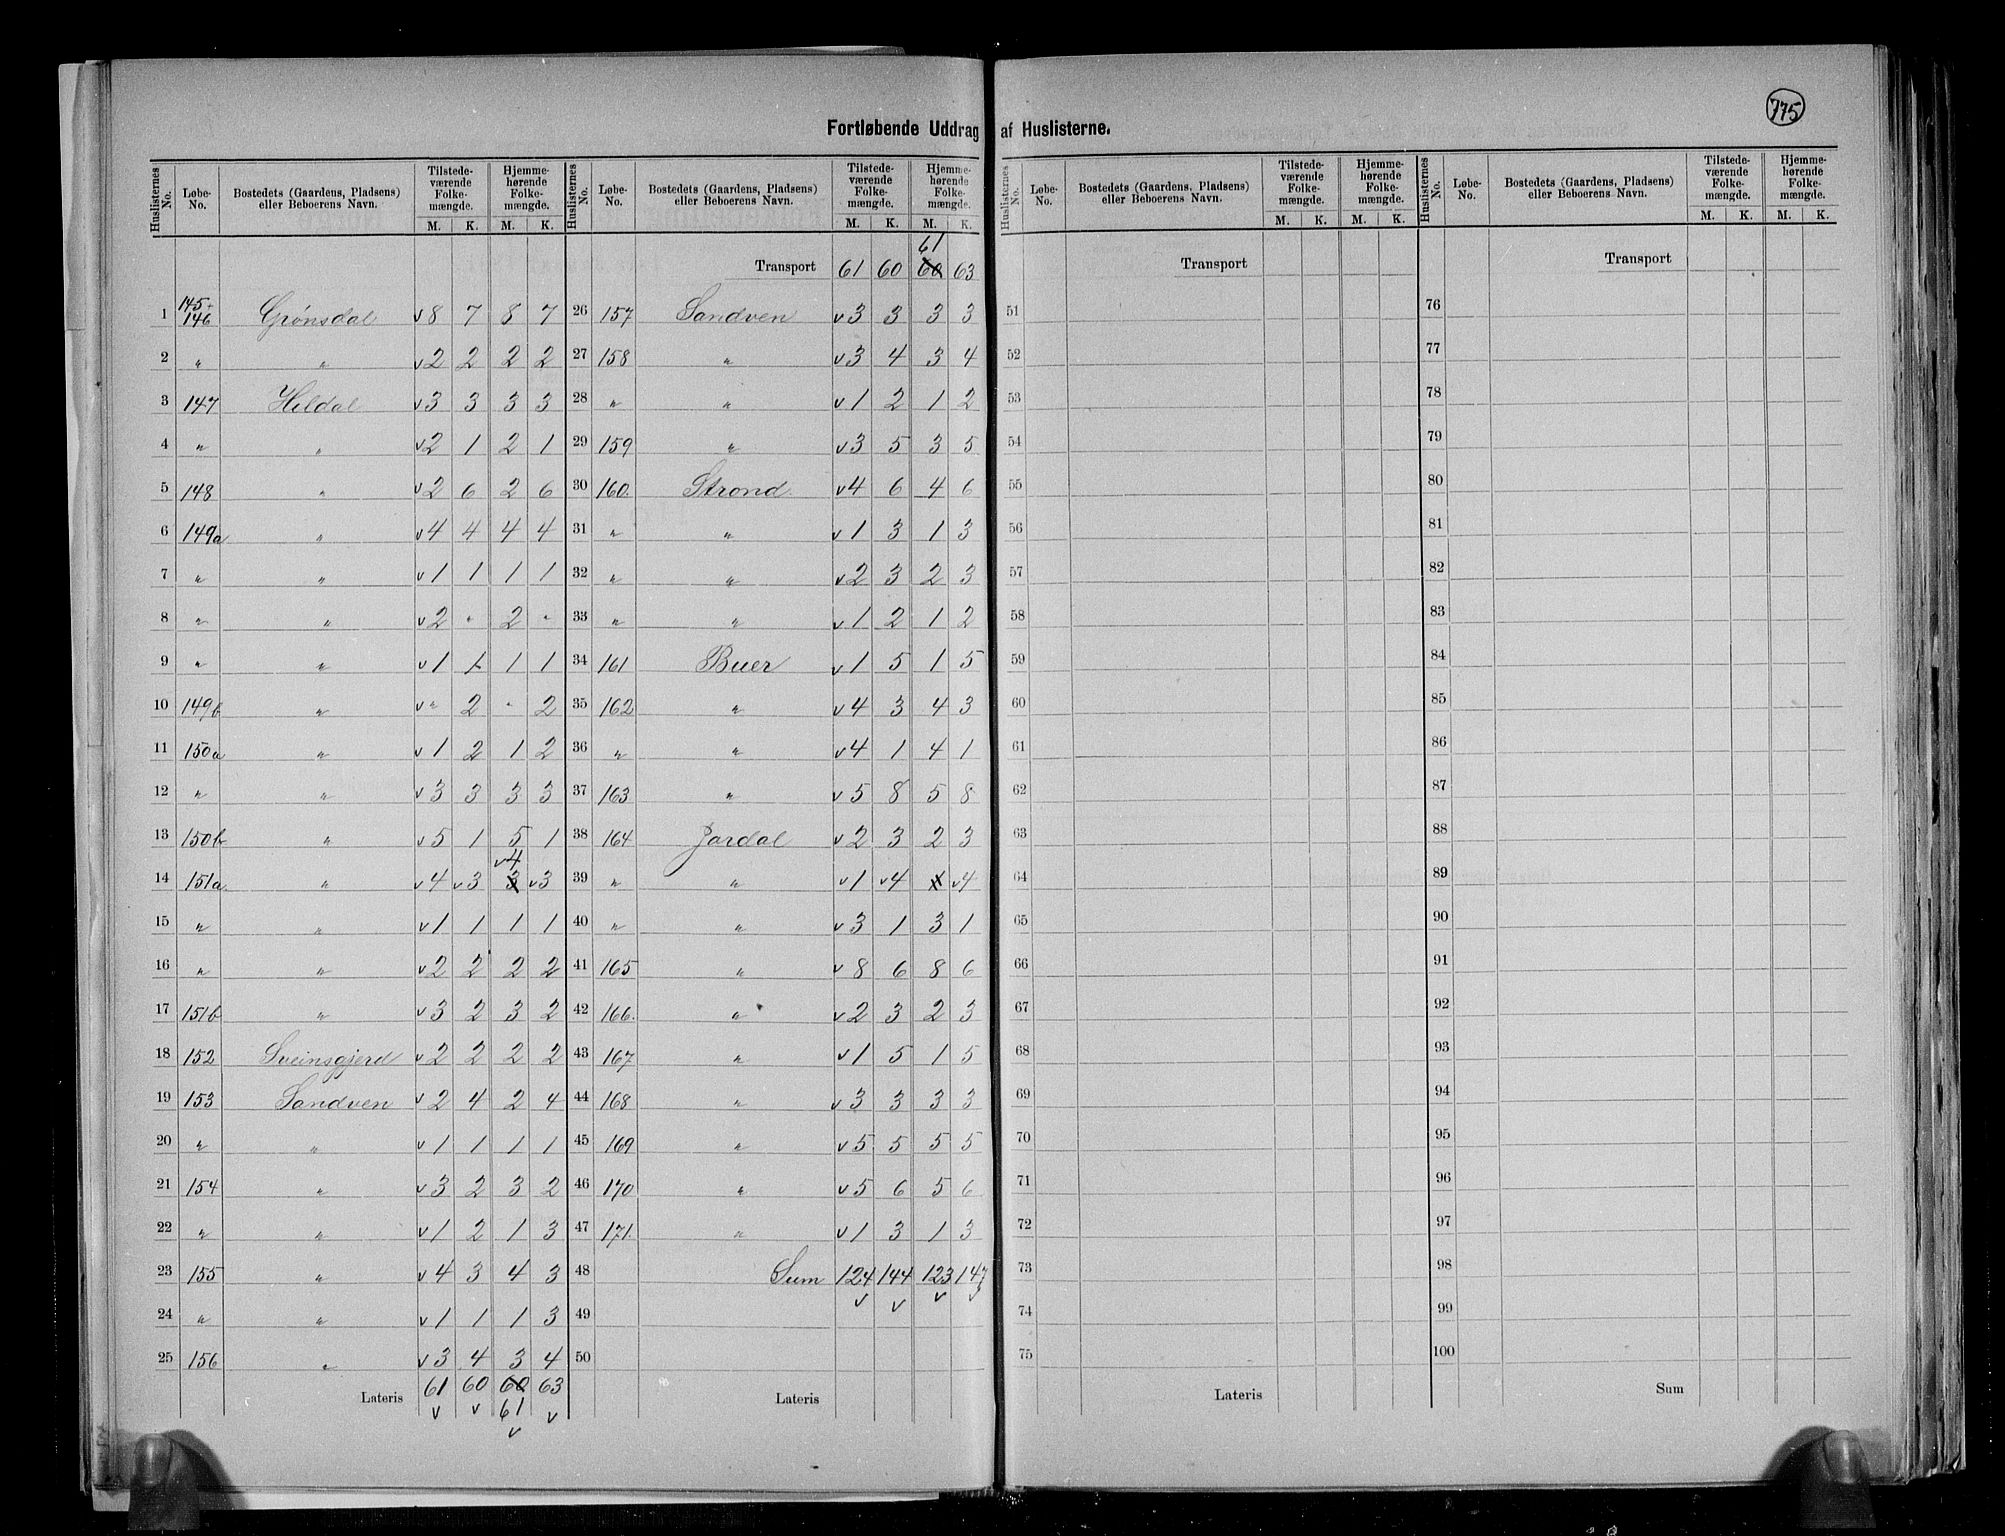 775
Fortløbende Uddrag af Huslisterne.
Huslisternes No. Løbe-No. Bostedets (Gaardens, Pladsens) eller Beboerens Navn. Tilstede-værende Folke-mængde. Hjemme-hørende Folke-mængde. M. K. M. K.
1 145+146 Grønsdal v8 7 8 7
2 " " v2 2 2 2
3 147 Hildal v3 3 3 3
4 " " v2 1 2 1
5 148 " v2 6 2 6
6 149a " v4 4 4 4
7 " " v1 1 1 1
8 " " v2 " 2 "
9 " " v1 1 1 1
10 149b " v" 2 " 2
11 150a " v1 2 1 2
12 " " v3 3 3 3
13 150b " v5 1 5 1
14 151a " v4 v3 3 v4 v3
15 " " v1 1 1 1
16 " " v2 2 2 2
17 151b " v3 2 3 2
18 152 Sveinsgjerd v2 2 2 2
19 153 Sandven v2 4 2 4
20 " " v1 1 1 1
21 154 " v3 2 3 2
22 " " v1 2 1 3
23 155 " v4 3 4 3
24 " " v1 1 1 3
25 156 " v3 4 3 4
Lateris 61 60 60 63
v v 61 v
v
Huslisternes No. Løbe-No. Bostedets (Gaardens, Pladsens) eller Beboerens Navn. Tilstede-værende Folke-mængde. Hjemme-hørende Folke-mængde. M. K. M. K.
61
Transport 61 60 60 63
26 157 Sandven v3 3 3 3
27 158 " v3 4 3 4
28 " " v1 2 1 2
29 159 " v3 5 3 5
30 160. Strond. v4 6 4 6
31 " " v1 3 1 3
32 " " v2 3 2 3
33 " " v1 2 1 2
34 161 Buer v1 5 1 5
35 162 " v4 3 4 3
36 " " v4 1 4 1
37 163 " v5 8 5 8
38 164 Jordal v2 3 2 3
39 " " v1 v4 1 v4
40 " " v3 1 3 1
41 165 " v8 6 8 6
42 166. " v2 3 2 3
43 167 " v1 5 1 5
44 168 " v3 3 3 3
45 169 " v5 5 5 5
46 170 " v5 6 5 6
47 171. " v1 3 1 3
48 Sum 124 144 123 147
v v v v
49
50
Lateris
Huslisternes No. Løbe-No. Bostedets (Gaardens, Pladsens) eller Beboerens Navn. Tilstede-værende Folke-mængde. Hjemme-hørende Folke-mængde. M. K. M. K.
Transport
51
52
53
54
55
56
57
58
59
60
61
62
63
64
65
66
67
68
69
70
71
72
73
74
75
Lateris
Huslisternes No. Løbe-No. Bostedets (Gaardens, Pladsens) eller Beboerens Navn. Tilstede-værende Folke-mængde. Hjemme-hørende Folke-mængde. M. K. M. K.
Transport
76
77
78
79
80
81
82
83
84
85
86
87
88
89
90
91
92
93
94
95
96
97
98
99
100
Sum